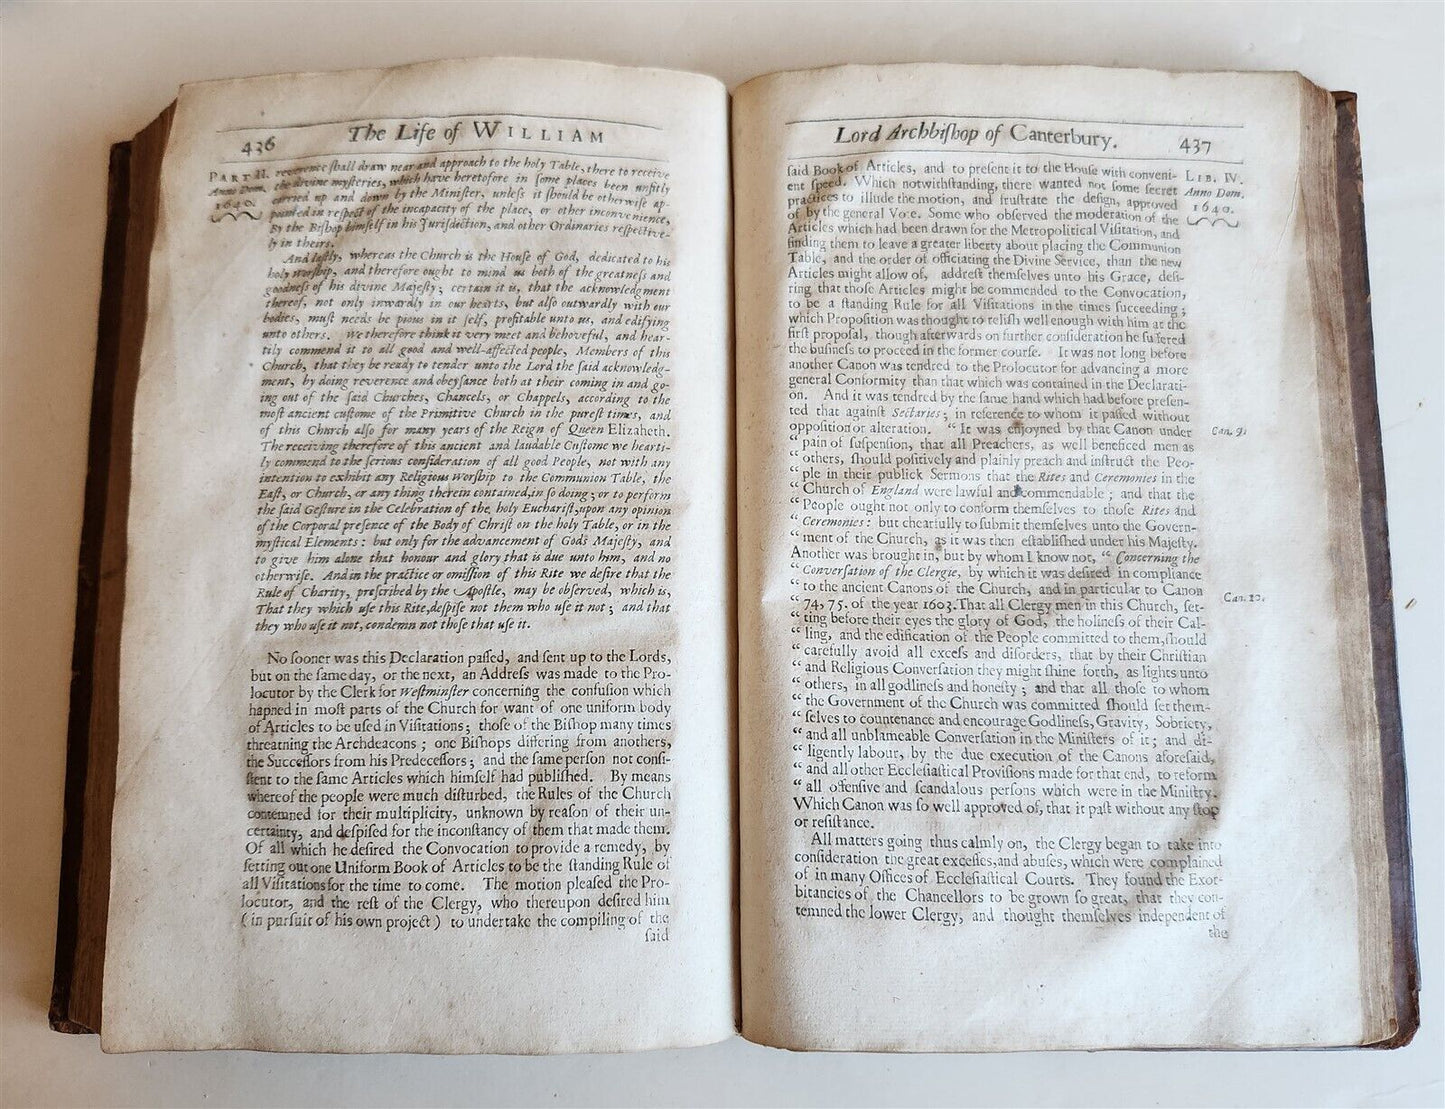 436 The Life of WILLIAM
PART II. reverence ſhall draw near and approach to the holy Table, there to receive
Anno Dom. the divine myſteries, which have heretofore in ſome places been unfitly
1640. carried up and down by the Miniſter, unleſs it ſhould be otherwiſe ap-
pointed in reſpect of the incapacity of the place, or other inconvenience,
By the Biſhop himſelf in his Jurisdiction, and other Ordinaries reſpective-
ly in theirs.
And laſtly, whereas the Church is the Houſe of God, dedicated to his
holy Worſhip, and therefore ought to mind us both of the greatneſs and
goodneſs of his divine Majeſty; certain it is, that the acknowledgment
thereof, not only inwardly in our hearts, but alſo outwardly with our
bodies, muſt needs be pious in it ſelf, profitable unto us, and edifying
unto others. We therefore think it very meet and behoveful, and hear-
tily commend it to all good and well-affected people, Members of this
Church, that they be ready to tender unto the Lord the ſaid acknowledg-
ment, by doing reverence and obeyſance both at their coming in and go-
ing out of the ſaid Churches, Chancels, or Chappels, according to the
moſt ancient cuſtome of the Primitive Church in the pureſt times, and
of this Church alſo for many years of the Reign of Queen Elizabeth.
The receiving therefore of this ancient and laudable Cuſtome we hearti-
ly commend to the ſerious conſideration of all good People, not with any
intention to exhibit any Religious Worſhip to the Communion Table, the
Eaſt, or Church, or any thing therein contained, in ſo doing; or to perform
the ſaid Geſture in the Celebration of the, holy Euchariſt, upon any opinion
of the Corporal preſence of the Body of Chriſt on the holy Table, or in the
myſtical Elements: but only for the advancement of Gods Majeſty, and
to give him alone that honour and glory that is due unto him, and no
otherwiſe. And in the practice or omiſſion of this Rite we deſire that the
Rule of Charity, preſcribed by the Apoſtle, may be obſerved, which is,
That they which uſe this Rite, deſpiſe not them who uſe it not; and that
they who uſe it not, condemn not thoſe that uſe it.
No ſooner was this Declaration paſſed, and ſent up to the Lords,
but on the ſame day, or the next, an Addreſs was made to the Pro-
locutor by the Clerk for Weſtminſter concerning the confuſion which
hapned in moſt parts of the Church for want of one uniform body
of Articles to be uſed in Viſitations; thoſe of the Biſhop many times
threatning the Archdeacons; one Biſhops differing from anothers,
the Succeſſors from his Predeceſſors; and the ſame perſon not conſi-
ſtent to the ſame Articles which himſelf had publiſhed. By means
whereof the people were much diſturbed, the Rules of the Church
contemned for their multiplicity, unknown by reaſon of their un-
certainty, and deſpiſed for the inconſtancy of them that made them.
Of all which he deſired the Convocation to provide a remedy, by
ſetting out one Uniform Book of Articles to be the ſtanding Rule of
all Viſitations for the time to come. The motion pleaſed the Pro-
locutor, and the reſt of the Clergy, who thereupon deſired him
(in purſuit of his own project) to undertake the compiling of the
ſaid
Lord Archbiſhop of Canterbury. 437
ſaid Book of Articles, and to preſent it to the Houſe with conveni- LIB. IV.
ent ſpeed. Which notwithſtanding, there wanted not ſome ſecret Anno Dom.
practices to illude the motion, and fruſtrate the deſign, approved 1640.
of by the general Vote. Some who obſerved the moderation of the
Articles which had been drawn for the Metropolitical Viſitation, and
finding them to leave a greater liberty about placing the Communion
Table, and the order of officiating the Divine Service, than the new
Articles might allow of, addreſt themſelves unto his Grace, deſi-
ring that thoſe Articles might be commended to the Convocation,
to be a ſtanding Rule for all Viſitations in the times ſucceeding;
which Propoſition was thought to reliſh well enough with him at the
firſt propoſal, though afterwards on further conſideration he ſuffered
the buſineſs to proceed in the former courſe. It was not long before
another Canon was tendred to the Prolocutor for advancing a more
general Conformity than that which was contained in the Declarati-
on. And it was tendred by the ſame hand which had before preſen-
ted that againſt Sectaries; in reference to whom it paſſed without
oppoſition or alteration. “ It was enjoyned by that Canon under Can. 9.
“ pain of ſuſpenſion, that all Preachers, as well beneficed men as
“ others, ſhould poſitively and plainly preach and inſtruct the Peo-
“ ple in their publick Sermons that the Rites and Ceremonies in the
“ Church of England were lawful and commendable; and that the
“ People ought not only to conform themſelves to thoſe Rites and
“ Ceremonies: but chearfully to ſubmit themſelves unto the Govern-
“ ment of the Church, as it was then eſtabliſhed under his Majeſty.
Another was brought in, but by whom I know not, “ Concerning the
“ Converſation of the Clergie, by which it was deſired in compliance
“ to the ancient Canons of the Church, and in particular to Canon Can. 10.
“ 74, 75. of the year 1603. That all Clergy men in this Church, ſet-
“ ting before their eyes the glory of God, the holineſs of their Cal-
“ ling, and the edification of the People committed to them, ſhould
“ carefully avoid all exceſs and diſorders, that by their Chriſtian
“ and Religious Converſation they might ſhine forth, as lights unto
“ others, in all godlineſs and honeſty; and that all thoſe to whom
“ the Government of the Church was committed ſhould ſet them-
“ ſelves to countenance and encourage Godlineſs, Gravity, Sobriety,
“ and all unblameable Converſation in the Miniſters of it; and di-
“ ligently labour, by the due execution of the Canons aforeſaid,
“ and all other Eccleſiaſtical Proviſions made for that end, to reform
“ all offenſive and ſcandalous perſons which were in the Miniſtry.
Which Canon was ſo well approved of, that it paſt without any ſtop
or reſiſtance.
All matters going thus calmly on, the Clergy began to take into
conſideration the great exceſſes, and abuſes, which were complained
of in many Offices of Eccleſiaſtical Courts. They found the Exor-
bitancies of the Chancellors to be grown ſo great, that they con-
temned the lower Clergy, and thought themſelves independent of
the